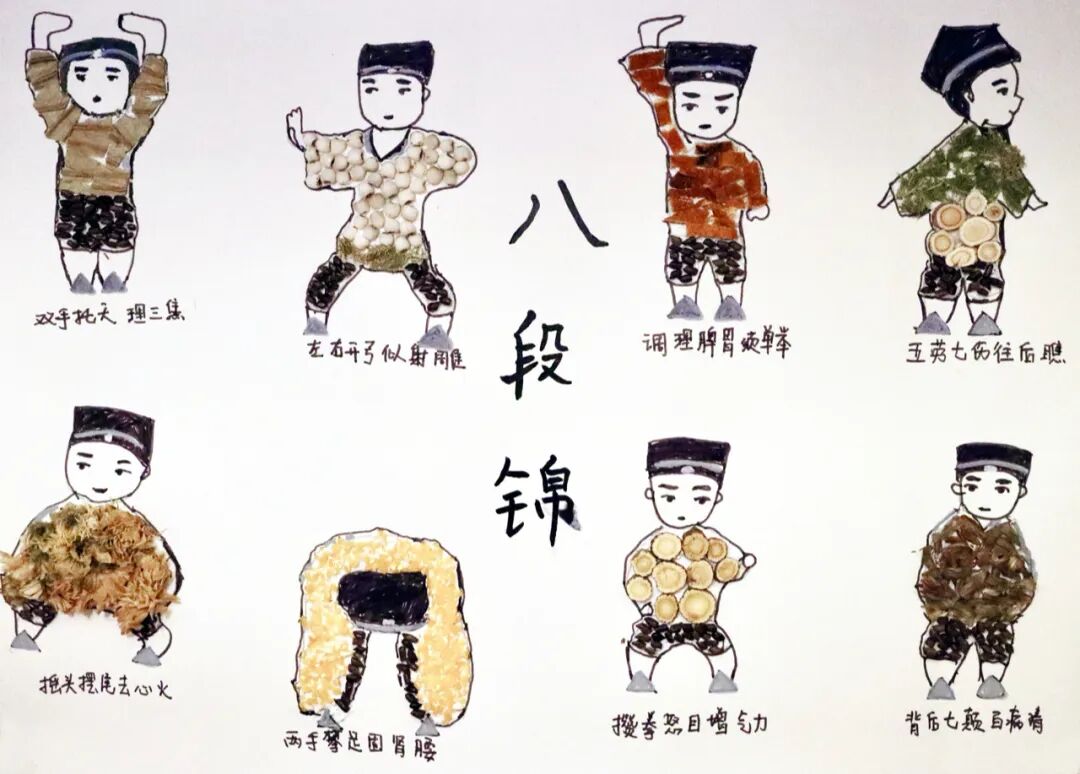 八段锦
双手托天 理三焦
左右开弓似射雕
调理脾胃须单举
五劳七伤往后瞧
摇头摆尾去心火
两手攀足固肾腰
攒拳怒目增气力
背后七颠百病消